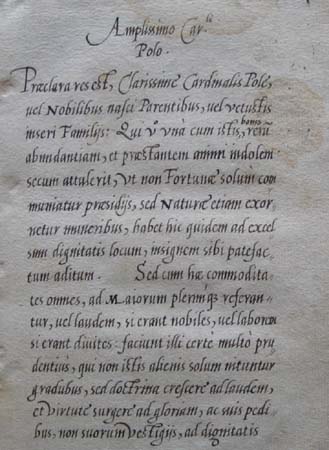 Amplissimo Car.li
Polo.
Præclara res est, Clarissime Cardinalis Pole,
uel Nobilibus nasci Parentibus, uel vetustis
inseri Familijs: Qui v̊ vnà cum istis, bonis rerū
abundantiam, et præstantem animi indolem
secum attulerit, Vt non Fortunæ solum com
muniatur præsidijs, sed Naturæ etiam exor
netur muneribus, habet hic quidem ad excel
sum dignitatis locum, insignem sibi patefac
tum aditum. Sed cum hæ commodita
tes omnes, ad Maiorum plerunq; referan
tur, uel laudem, si erant nobiles, uel laborem
si erant diuites: faciunt illi certè multò pru
dentiùs, qui non istis alienis solum nituntur
gradubus, sed doctrina crescere ad laudem,
et virtute surgere ad gloriam, ac suis pedi
bus, non suorum vestigijs, ad dignitatis